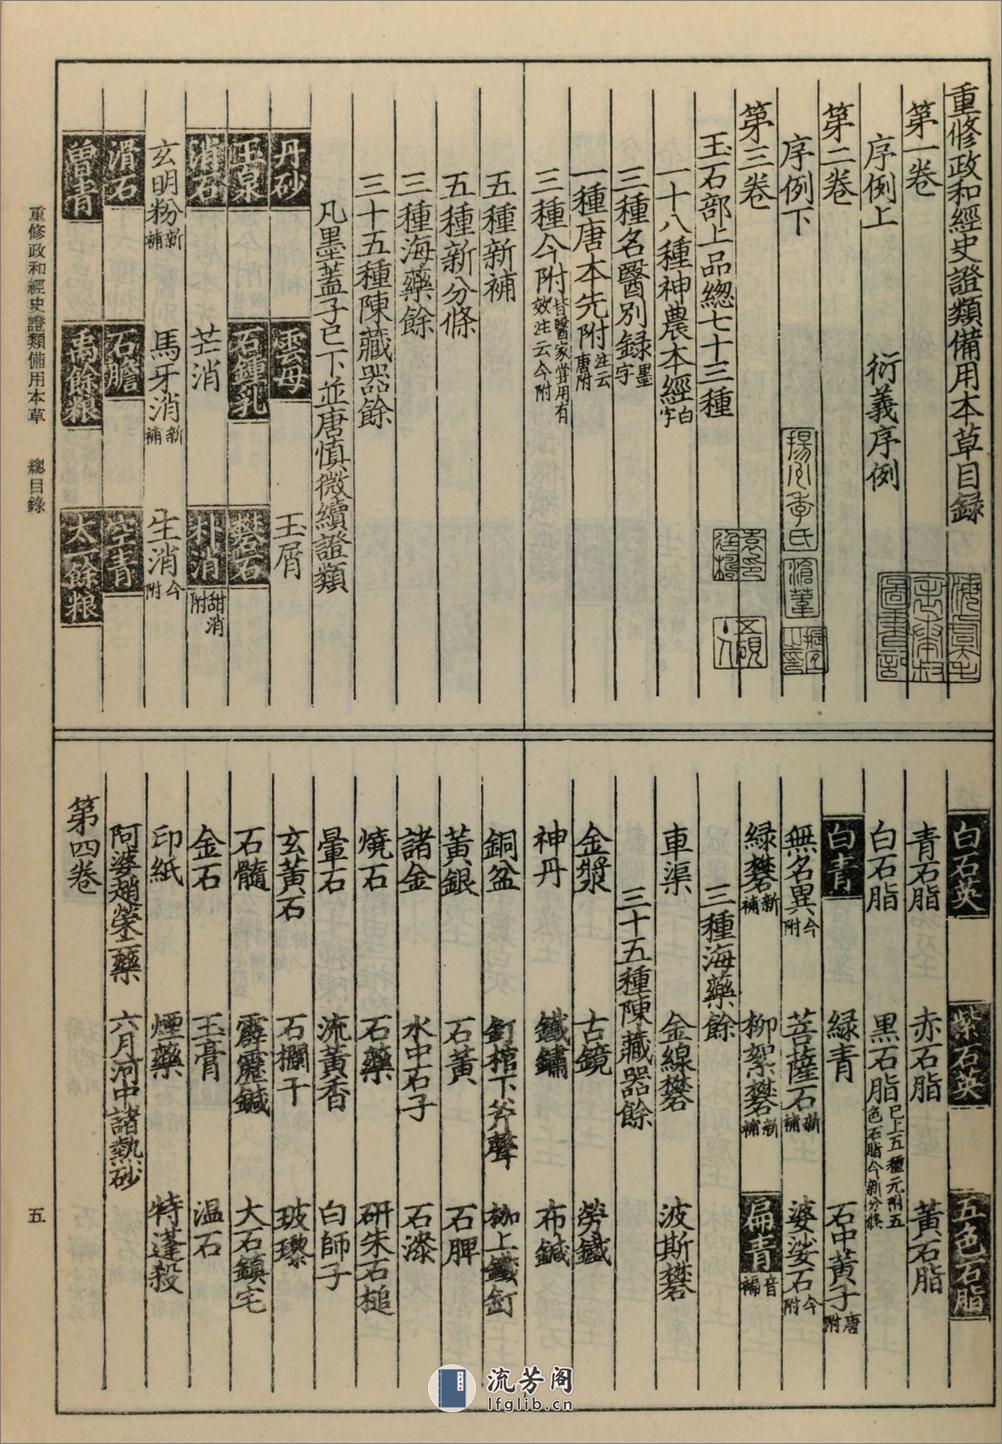 重修政和經史證類備用本草目録
第一卷
序例上 衍義序例
第二卷
序例下
第三卷
玉石部上品總七十三種
一十八種神農本經白字
三種名醫別録墨字
一種唐本先附注云唐附
三種今附皆醫家嘗用有效注云今附
五種新補
五種新分條
三種海藥餘
三十五種陳藏器餘
凡墨蓋子已下並唐慎微續證類
丹砂 雲母 玉屑
玉泉 石鍾乳 礬石
消石 芒消 朴消甜消附
玄明粉新補 馬牙消新補 生消今附
滑石 石膽 空青
曽青 禹餘粮 太一餘粮
白石英 紫石英 五色石脂
青石脂 赤石脂 黃石脂
白石脂 黑石脂已上五種元附五色石脂今新分條
白青 緑青 石中黃子唐附
無名異今附 菩薩石新補 婆娑石今附
緑礬新補 柳絮礬新補 扁青音褊
三種海藥餘
車渠 金線礬 波斯礬
三十五種陳藏器餘
金漿 古鏡 勞鐵
神丹 鐵鏽 布鍼
銅盆 釘棺下斧聲 枷上鐵釘
黃銀 石黃 石脾
諸金 水中石子 石漆
燒石 石藥 研朱石槌
暈石 流黃香 白師子
玄黃石 石欄干 玻瓈
石髓 霹靂鍼 大石鎮宅
金石 玉膏 温石
印紙 煙藥 特蓬殺
阿婆趙榮二藥 六月河中諸熱砂
第四卷
重修政和經史證類備用本草 總目錄
五
流芳阁
lfglib.cn